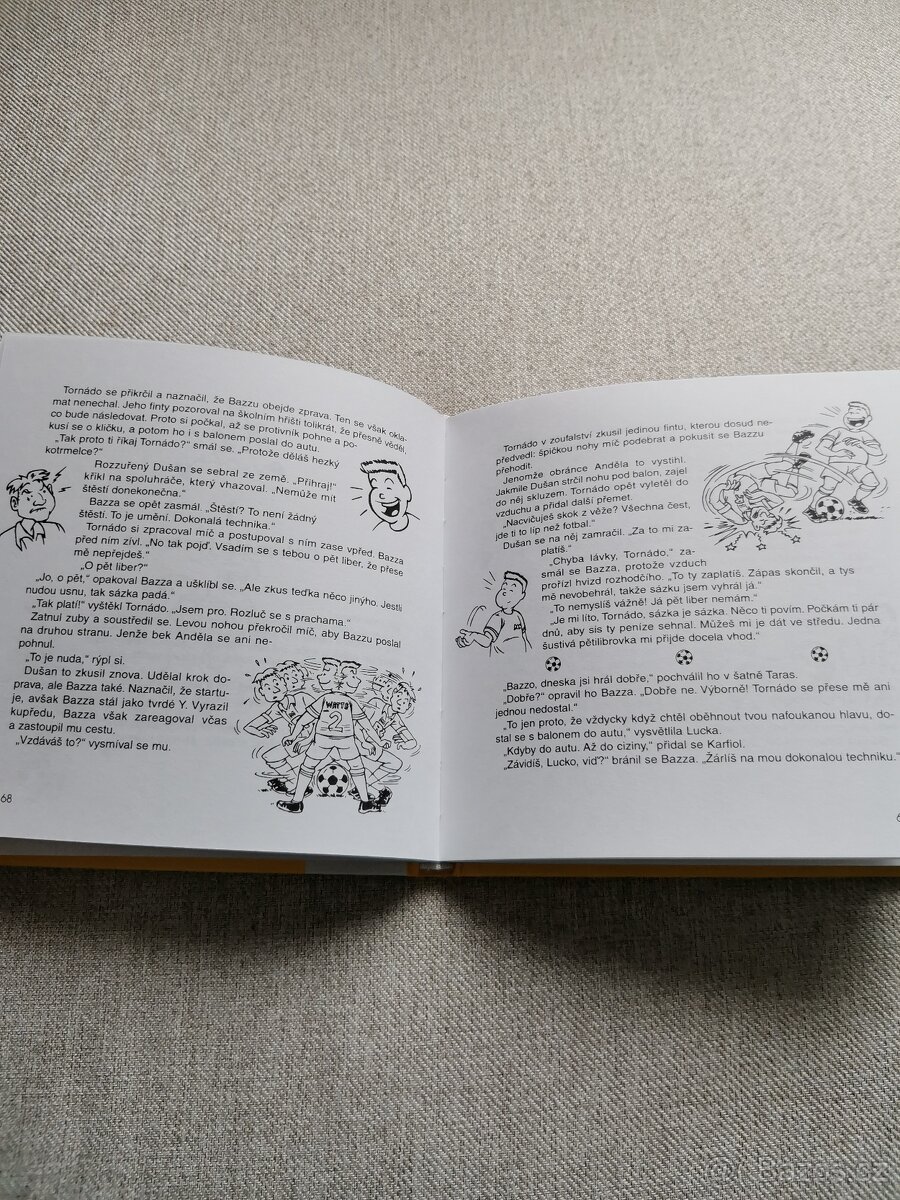 Tornádo se přikrčil a naznačil, že Bazzu obejde zprava. Ten se však okla-
mat nenechal. Jeho finty pozoroval na školním hřišti tolikrát, že přesně věděl,
co bude následovat. Proto si počkal, až se protivník pohne a po-
kusí se o kličku, a potom ho i s balonem poslal do autu.
„Tak proto ti říkaj Tornádo?“ smál se. „Protože děláš hezký
kotrmelce?“
Rozzuřený Dušan se sebral ze země. „Přihraj!“
křikl na spoluhráče, který vhazoval. „Nemůže mít
štěstí donekonečna.“
Bazza se opět zasmál. „Štěstí? To není žádný
štěstí. To je umění. Dokonalá technika.“
Tornádo si zpracoval míč a postupoval s ním zase vpřed. Bazza
před ním zívl. „No tak pojď. Vsadím se s tebou o pět liber, že přese
mě nepřejdeš.“
„O pět liber?“
„Jo, o pět,“ opakoval Bazza a ušklíbl se. „Ale zkus teďka něco jinýho. Jestli
nudou usnu, tak sázka padá.“
„Tak platí!“ vyštěkl Tornádo. „Jsem pro. Rozluč se s prachama.“
Zatnul zuby a soustředil se. Levou nohou překročil míč, aby Bazzu poslal
na druhou stranu. Jenže bek Anděla se ani ne-
pohnul.
„To je nuda,“ rýpl si.
Dušan to zkusil znova. Udělal krok do-
prava, ale Bazza také. Naznačil, že startu-
je, avšak Bazza stál jako tvrdé Y. Vyrazil
kupředu, Bazza však zareagoval včas
a zastoupil mu cestu.
„Vzdáváš to?“ vysmíval se mu.
WATTS
2
68
Tornádo v zoufalství zkusil jedinou fintu, kterou dosud ne-
předvedl: špičkou nohy míč podebrat a pokusit se Bazzu
přehodit.
Jenomže obránce Anděla to vystihl.
Jakmile Dušan strčil nohu pod balon, zajel
do něj skluzem. Tornádo opět vyletěl do
vzduchu a přidal další přemet.
„Nacvičuješ skok z věže? Všechna čest,
jde ti to líp než fotbal.“
Dušan se na něj zamračil. „Za to mi za-
platíš.“
„Chyba lávky, Tornádo,“ za-
smál se Bazza, protože vzduch
prořízl hvizd rozhodčího. „To ty zaplatíš. Zápas skončil, a tys
mě nevobehrál, takže sázku jsem vyhrál já.“
„To nemyslíš vážně! Já pět liber nemám.“
„Je mi líto, Tornádo, sázka je sázka. Něco ti povím. Počkám ti pár
dnů, aby sis ty peníze sehnal. Můžeš mi je dát ve středu. Jedna
šustivá pětilibrovka mi přijde docela vhod.“
„Bazzo, dneska jsi hrál dobře,“ pochválil ho v šatně Taras.
„Dobře?“ opravil ho Bazza. „Dobře ne. Výborně! Tornádo se přese mě ani
jednou nedostal.“
„To jen proto, že vždycky když chtěl oběhnout tvou nafoukanou hlavu, do-
stal se s balonem do autu,“ vysvětlila Lucka.
„Kdyby do autu. Až do ciziny,“ přidal se Karfiol.
„Závidíš, Lucko, viď?“ bránil se Bazza. „Žárlíš na mou dokonalou techniku.“
© Bazos.cz